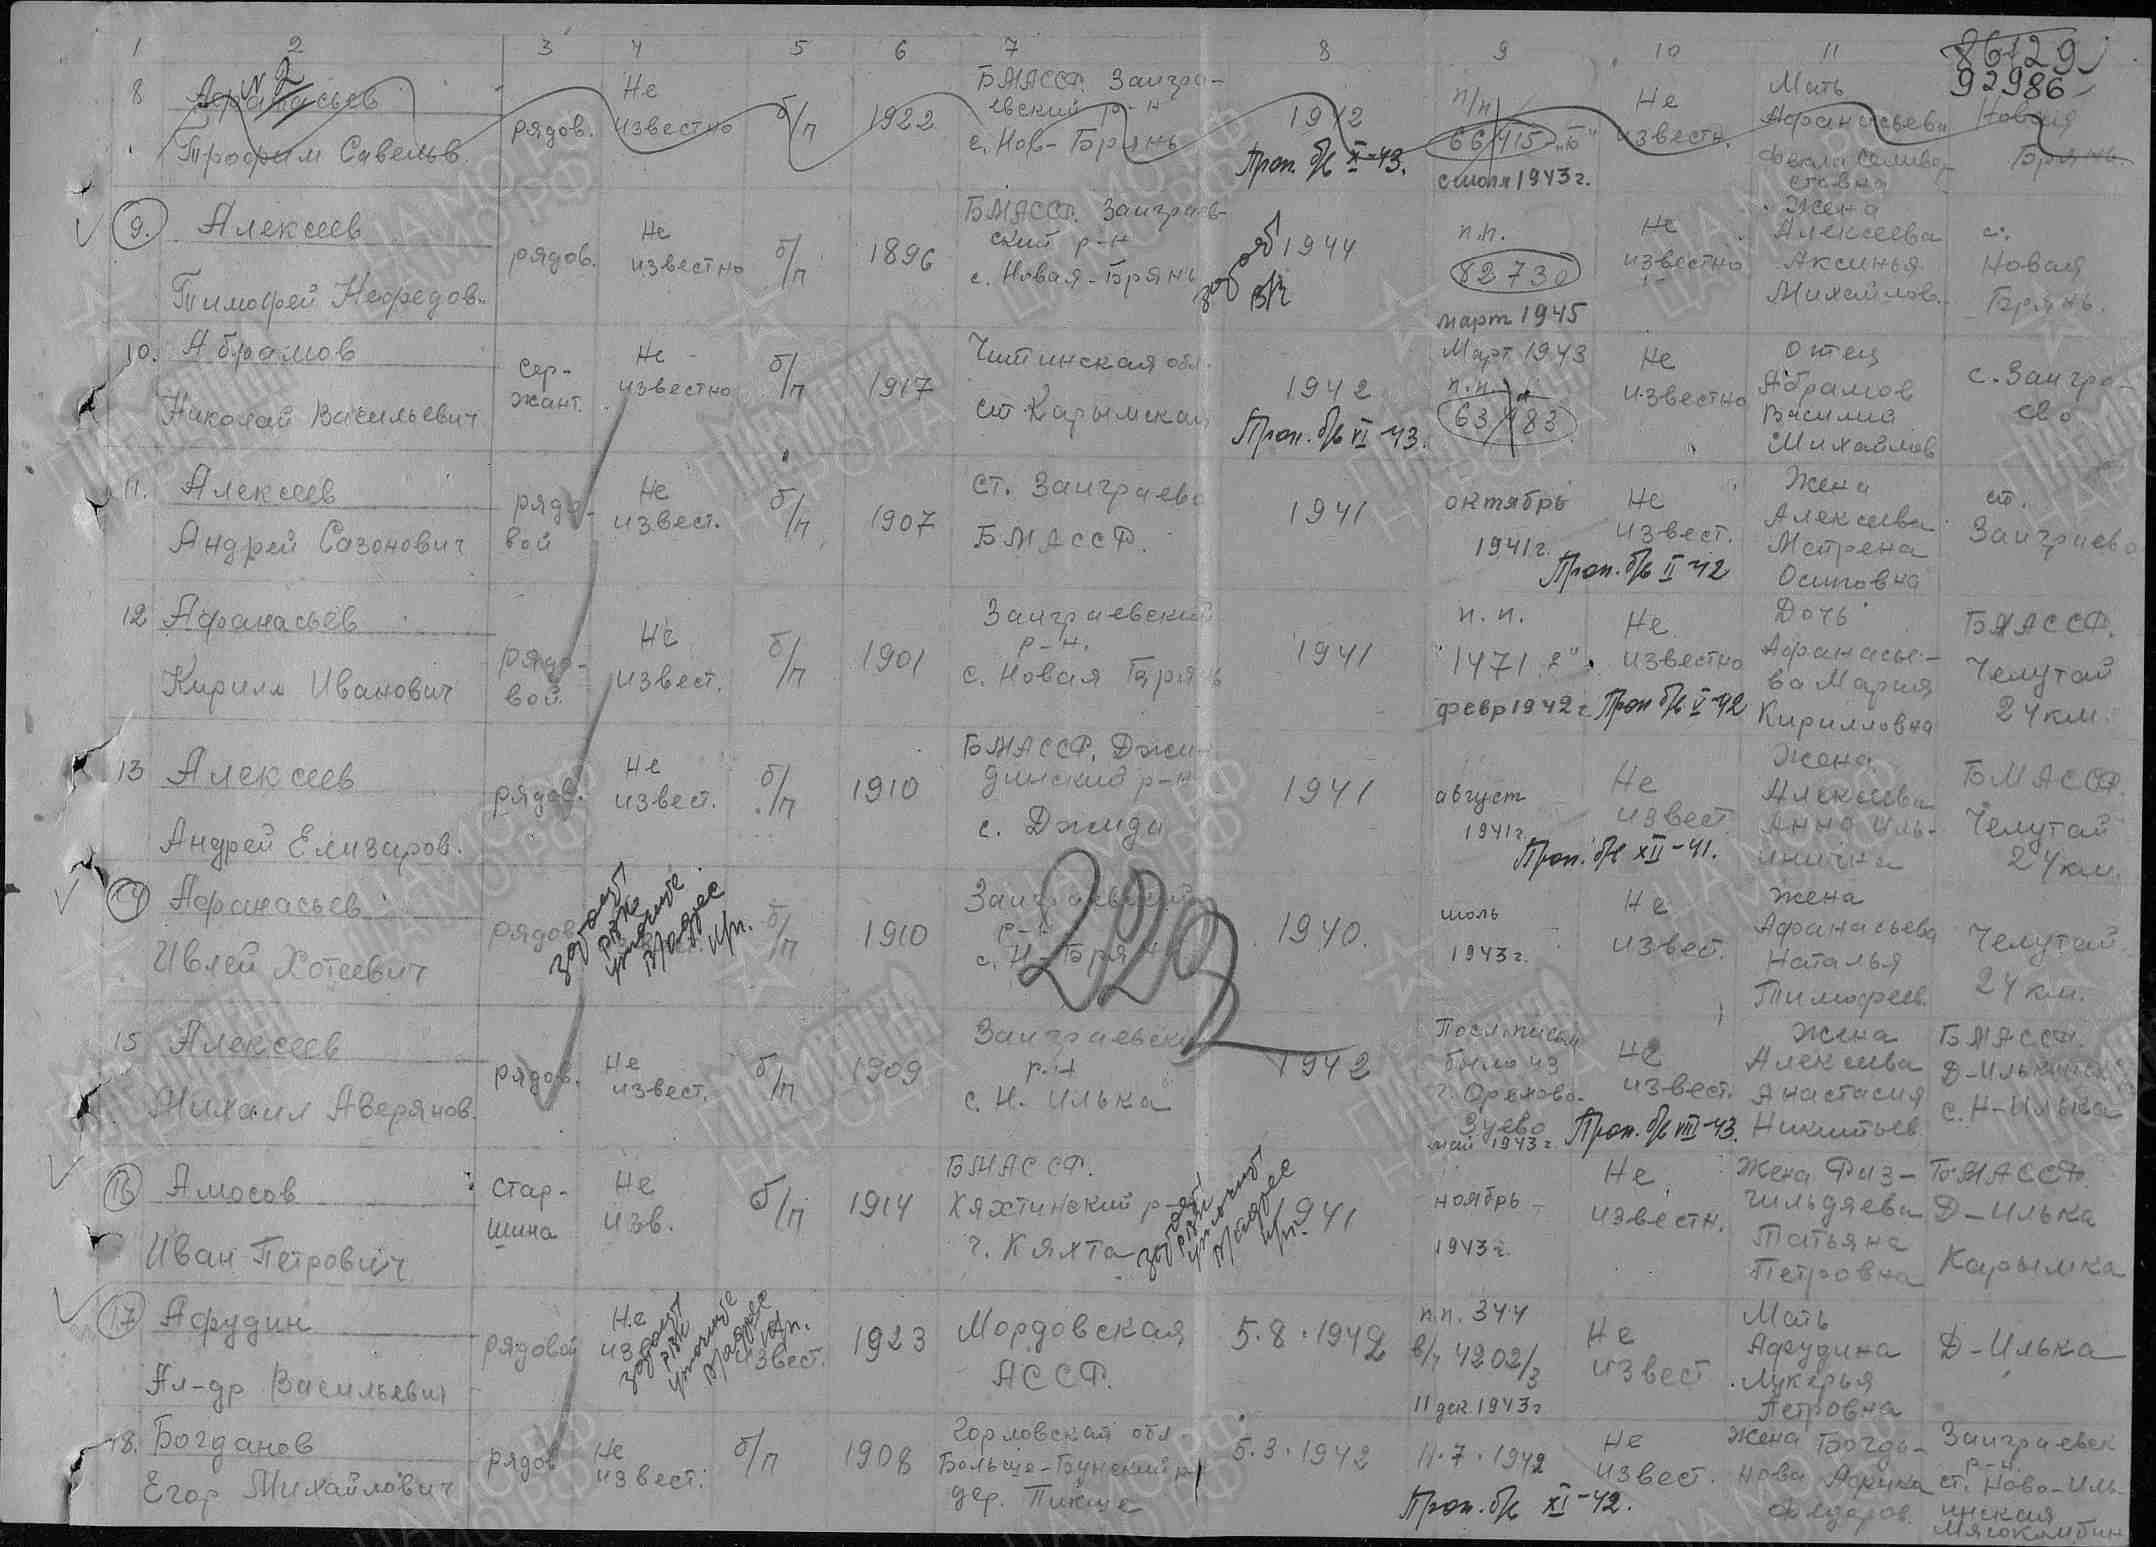 1 2 3 4 5 6 7 8 9 10 11
86129
92986
8 Афанасьев N2
Трофим Савельв.
рядов.
Не
известно
б/п
1922
БМАССР. Заигра-
евский р-н
с. Нов-Брянь
1942
Проп. б/в X-43.
п/п
66415 „Б"
с июля 1943 г.
Не
известн.
Мать
Афанасьева
Фекла Селиве-
стовна
Новая
Брянь.
9. Алексеев
Тимофей Нефедов.
рядов.
Не
известно
б/п
1896
БМАССР. Заиграев-
ский р-н
с. Новая-Брянь
1944
п.п.
82730
март 1945
Не
известно
Жена
Алексеева
Аксинья
Михайлов.
с.
Новая
Брянь.
10. Абрамов
Николай Васильевич
Сер-
жант.
Не
известно
б/п
1917
Читинская обл.
ст Карымская
1942
Проп. б/в VI-43.
Март 1943
п.п.
63483
Не
известно
Отец
Абрамов
Василий
Михайлов
с. Заигра-
ево
11. Алексеев
Андрей Сазонович
рядо-
вой
Не
извест.
б/п
1907
ст. Заиграево
БМАССР.
1941
октябрь
1941 г.
Проп. б/в II-42
Не
извест.
Жена
Алексеева
Матрена
Осиповна
ст.
Заиграево
12 Афанасьев
Кирилл Иванович
рядо-
вой.
Не
извест.
б/п
1901
Заиграевский
р-н.
с. Новая Брянь
1941
п.п.
"1471
февр 1942 г
Проп б/в V-42
Не
известно
Дочь
Афанасье-
ва Мария
Кирилловна
БМАССР.
Челутай
24 км.
13 Алексеев
Андрей Елизаров.
рядов.
Не
извест.
б/п
1910
БМАССР. Джи-
динский р-н
с. Джида
1941
август
1941 г.
Проп. б/в XII-41.
Не
извест.
Жена
Алексеева
Анна Иль-
инична
БМАССР.
Челутай
24 км.
14 Афанасьев
Ивлей Хотеевич
рядов.
запросить
РВК
уточнить
в/адрес
и/п.
б/п
1910
Заиграевский
р-н
с. Н-Брянь
229
1940.
июль
1943 г.
Не
извест.
Жена
Афанасьева
Наталья
Тимофеев.
Челутай
24 км.
15 Алексеев
Михаил Аверянов.
рядов.
Не
извест.
б/п
1909
Заиграевский
р-н
с. Н. Илька
1942
Посл. письмо
было из
г. Орехово-
Зуево
май 1943 г.
Проп. б/в VIII-43.
Не
извест.
Жена
Алексеева
Анастасия
Никитьев.
БМАССР.
с. Н-Илька
16 Амосов
Иван Петрович
Стар-
шина
Не
изв.
б/п
1914
БМАССР.
Кяхтинский р-н
г. Кяхта
1941
ноябрь
1943 г.
Не
известн.
Жена Физ-
чильдяева
Татьяна
Петровна
БМАССР.
Д-Илька
Карымка
17. Афудин
Ал-др Васильевич
рядовой
Не
извест.
1923
Мордовская
АССР.
5.8.1942
п.п. 344
в/ч 4202/3
11 дек 1943 г
Не
извест
Мать
Афудина
Лукерья
Петровна
Д-Илька
18. Богданов
Егор Михайлович
рядов
Не
извест.
б/п
1908
Горловская обл
дер. Пикше
5.3.1942
11.7.1942
Проп. б/в XI-42.
Не
извест.
Жена Богда-
нова
Федоров.
Заиграевск
р-н.
ст. Ново-Иль-
инская
Мясокомбин